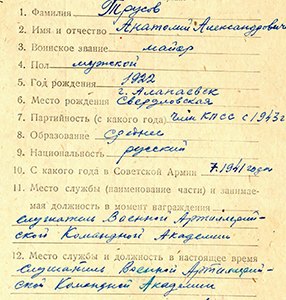 1. Фамилия Трусов
2. Имя и отчество Анатолий Александрович
3. Воинское звание майор
4. Пол мужской
5. Год рождения 1922
г. Алапаевск
6. Место рождения Свердловская
7. Партийность (с какого года) член КПСС с 1943 г
8. Образование среднее
9. Национальность русский
10. С какого года в Советской Армии 7.1941 года
11. Место службы (наименование части) и занимае-
мая должность в момент награждения
слушатель Военной Артиллерий-
ской Командной Академии
12. Место службы и должность в настоящее время
слушатель Военной Артиллерий-
ской Командной Академии